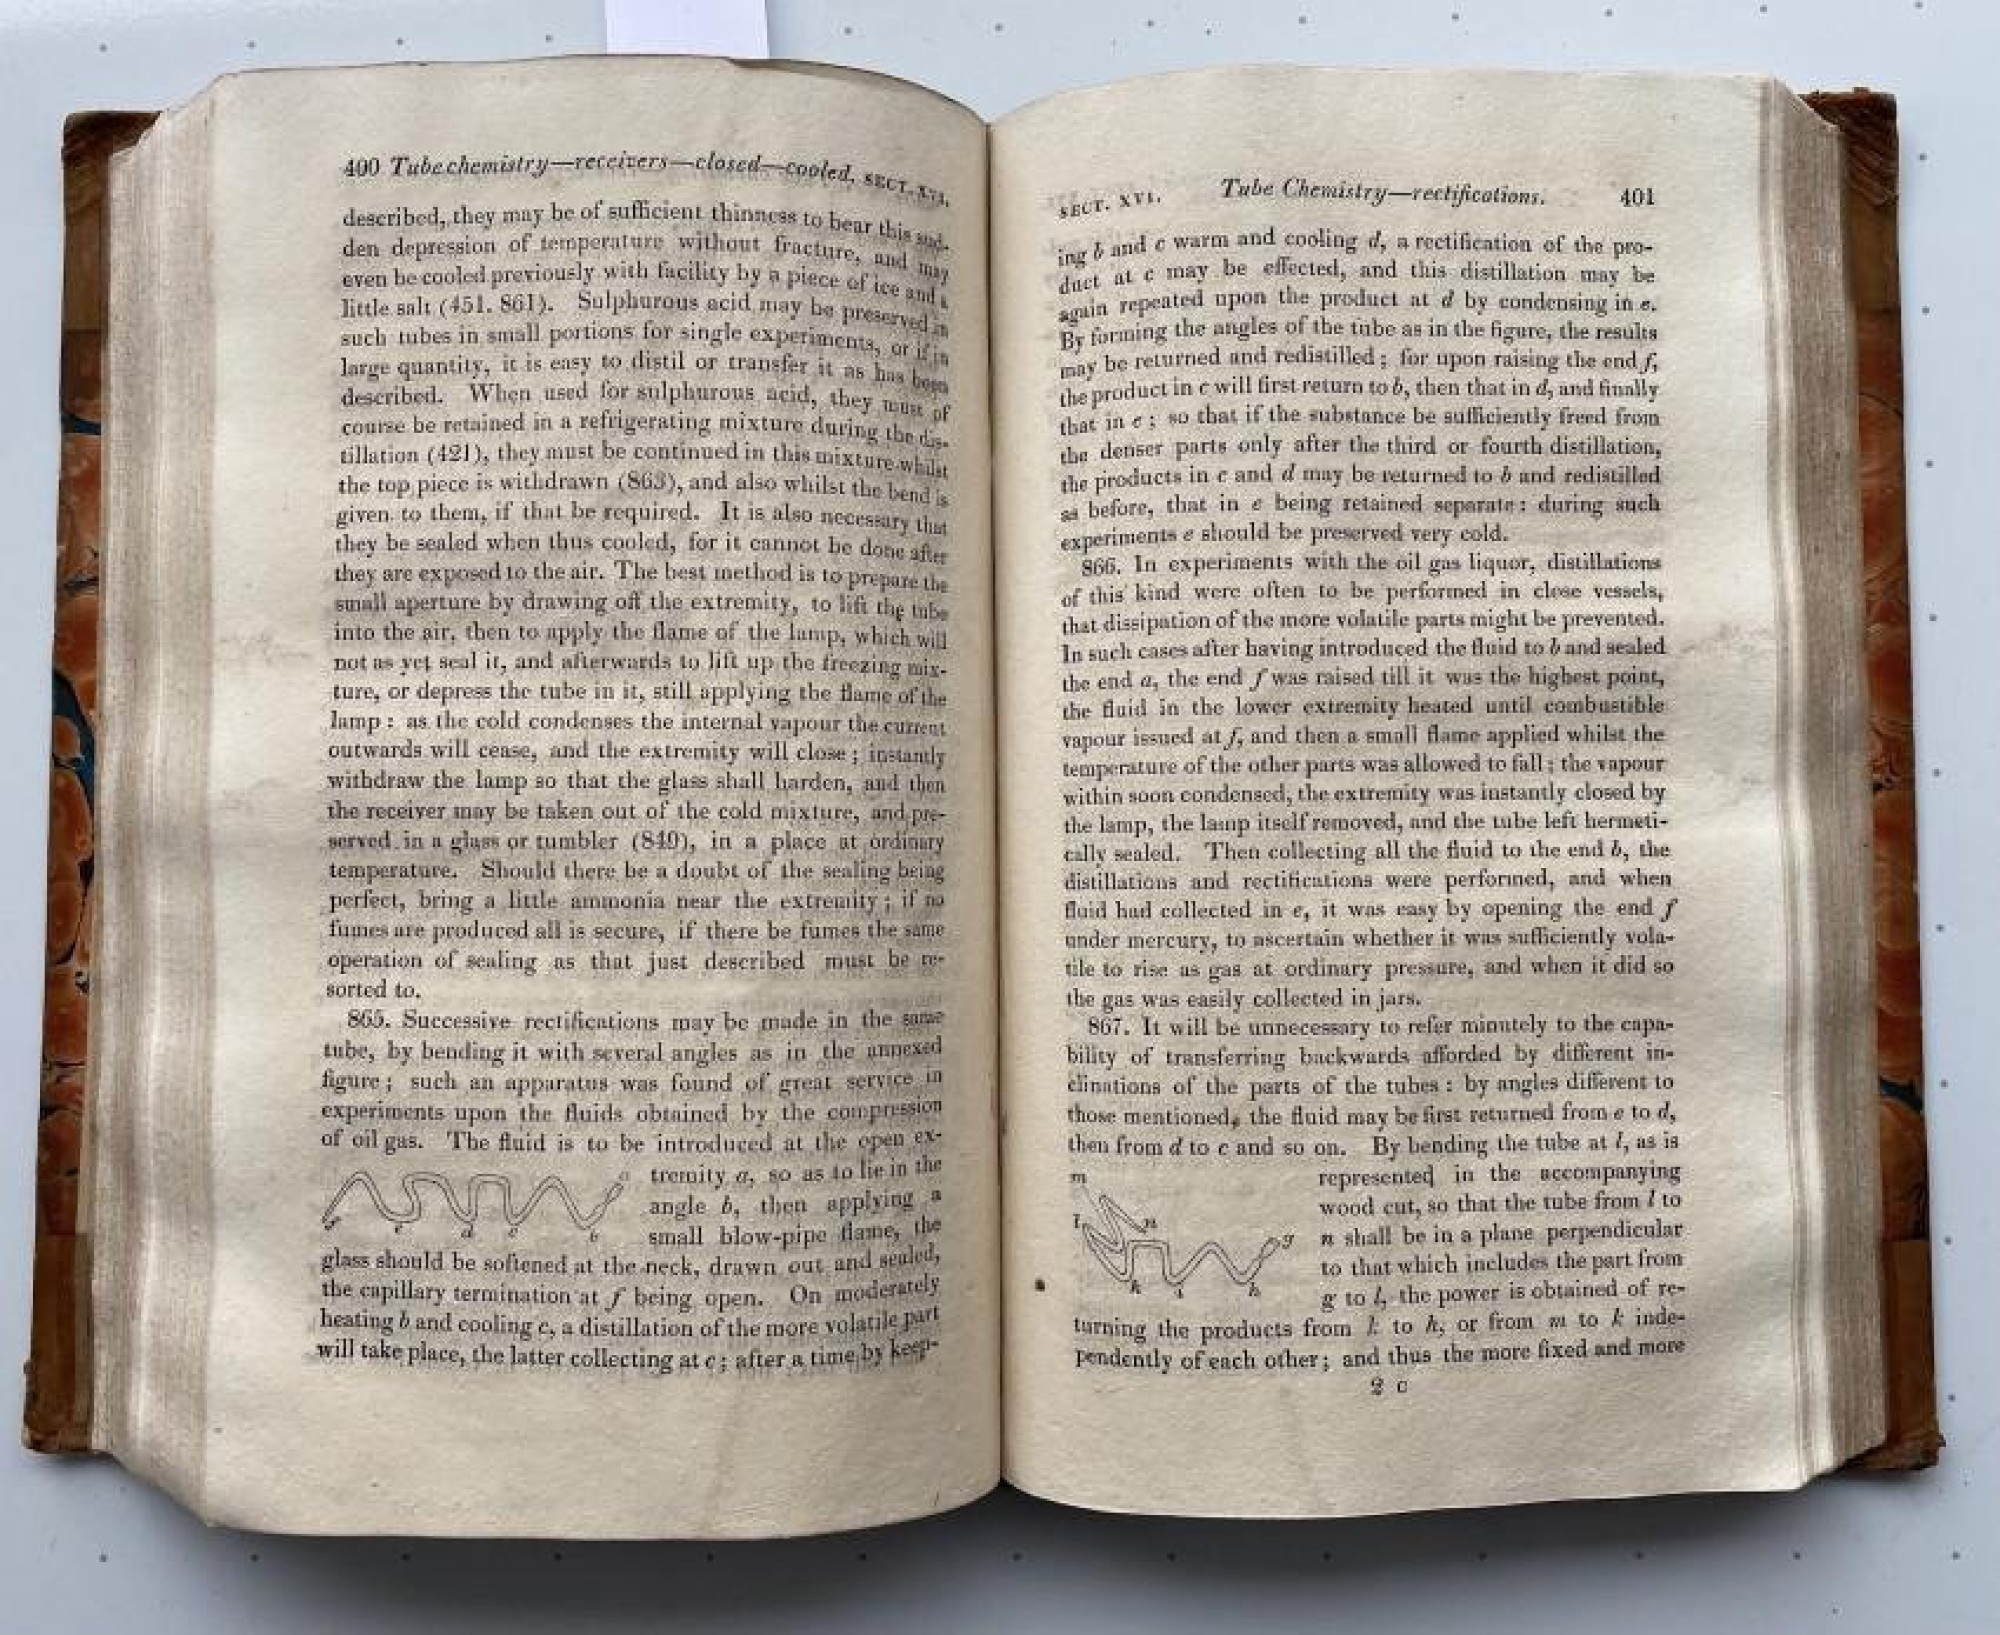 400 Tube chemistry—receivers—closed—cooled. SECT. XVI.
described, they may be of sufficient thinness to bear this sud-
den depression of temperature without fracture, and may
even be cooled previously with facility by a piece of ice and a
little salt (451. 861). Sulphurous acid may be preserved in
such tubes in small portions for single experiments, or if in
large quantity, it is easy to distil or transfer it as has been
described. When used for sulphurous acid, they must of
course be retained in a refrigerating mixture during the dis-
tillation (421), they must be continued in this mixture whilst
the top piece is withdrawn (863), and also whilst the bend is
given to them, if that be required. It is also necessary that
they be sealed when thus cooled, for it cannot be done after
they are exposed to the air. The best method is to prepare the
small aperture by drawing off the extremity, to lift the tube
into the air, then to apply the flame of the lamp, which will
not as yet seal it, and afterwards to lift up the freezing mix-
ture, or depress the tube in it, still applying the flame of the
lamp : as the cold condenses the internal vapour the current
outwards will cease, and the extremity will close ; instantly
withdraw the lamp so that the glass shall harden, and then
the receiver may be taken out of the cold mixture, and pre-
served in a glass or tumbler (849), in a place at ordinary
temperature. Should there be a doubt of the sealing being
perfect, bring a little ammonia near the extremity ; if no
fumes are produced all is secure, if there be fumes the same
operation of sealing as that just described must be re-
sorted to.
865. Successive rectifications may be made in the same
tube, by bending it with several angles as in the annexed
figure ; such an apparatus was found of great service in
experiments upon the fluids obtained by the compression
of oil gas. The fluid is to be introduced at the open ex-
tremity a, so as to lie in the
angle b, then applying a
small blow-pipe flame, the
a
f e d c b
glass should be softened at the neck, drawn out and sealed,
the capillary termination at f being open. On moderately
heating b and cooling c, a distillation of the more volatile part
will take place, the latter collecting at c ; after a time by keep-
SECT. XVI. Tube Chemistry—rectifications. 401
ing b and c warm and cooling d, a rectification of the pro-
duct at c may be effected, and this distillation may be
again repeated upon the product at d by condensing in e.
By forming the angles of the tube as in the figure, the results
may be returned and redistilled ; for upon raising the end f,
the product in c will first return to b, then that in d, and finally
that in e ; so that if the substance be sufficiently freed from
the denser parts only after the third or fourth distillation,
the products in c and d may be returned to b and redistilled
as before, that in e being retained separate : during such
experiments e should be preserved very cold.
866. In experiments with the oil gas liquor, distillations
of this kind were often to be performed in close vessels,
that dissipation of the more volatile parts might be prevented.
In such cases after having introduced the fluid to b and sealed
the end a, the end f was raised till it was the highest point,
the fluid in the lower extremity heated until combustible
vapour issued at f, and then a small flame applied whilst the
temperature of the other parts was allowed to fall ; the vapour
within soon condensed, the extremity was instantly closed by
the lamp, the lamp itself removed, and the tube left hermeti-
cally sealed. Then collecting all the fluid to the end b, the
distillations and rectifications were performed, and when
fluid had collected in e, it was easy by opening the end f
under mercury, to ascertain whether it was sufficiently vola-
tile to rise as gas at ordinary pressure, and when it did so
the gas was easily collected in jars.
867. It will be unnecessary to refer minutely to the capa-
bility of transferring backwards afforded by different in-
clinations of the parts of the tubes : by angles different to
those mentioned, the fluid may be first returned from e to d,
then from d to c and so on. By bending the tube at l, as is
represented in the accompanying
wood cut, so that the tube from l to
n shall be in a plane perpendicular
to that which includes the part from
g to l, the power is obtained of re-
m
l n
g
k i h
turning the products from k to h, or from m to k inde-
pendently of each other ; and thus the more fixed and more
2 C